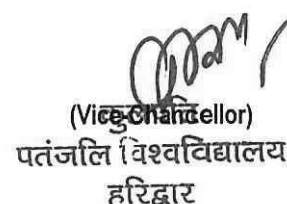 (Vice-Chancellor)
पतंजलि विश्वविद्यालय
हरिद्वार